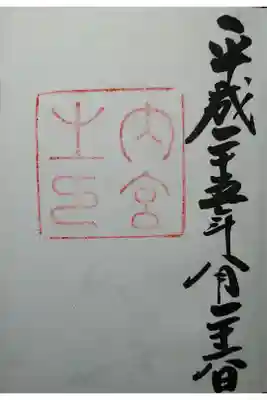 平成二十五年八月二十日
内宮
之印